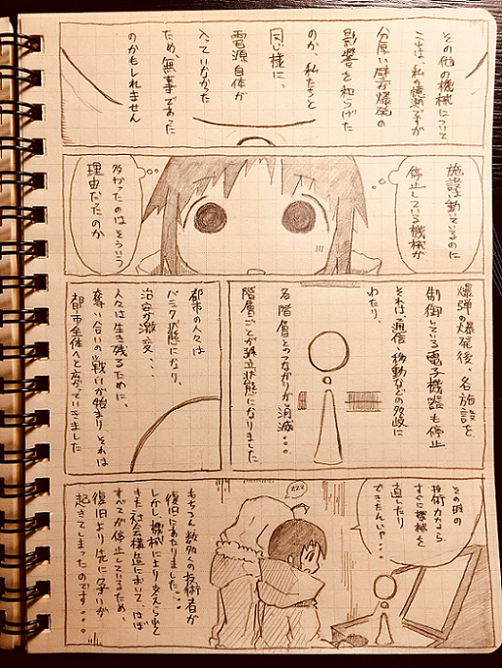 その他の機械について
ここは、私の憶測ですが
分厚い壁が爆発の
影響を和らげた
のか、私たちと
同じ様に、
電源自体が
入っていなかった
ため、無事であった
のかもしれません
施設は動そいるのに
停止している機械が
多かったのはそういう
理由だったのか
爆弾の爆発後、各施設を
制御している電子機器も停止
それは、通信、移動などの多岐に
わたり
各階層とつながりが消滅・・・
階層ごとが孤立状態になりました
都市の人々は
パニック状態になり、
治安が激変・・・
人々は生き残るために、
奪い合いの戦いが始まり それは
都市全体へと広がっていきました
その時の
技術力なら
すぐに機械を
直したり
できたんじゃ・・・
zzz
もちろん数多くの技術者が
復旧にあたりました・・・
しかし、機械により支えられて
きた社会構造において、ほぼ
すべてが停止しているため、
復旧より先に争いが
起きてしまったのです・・・